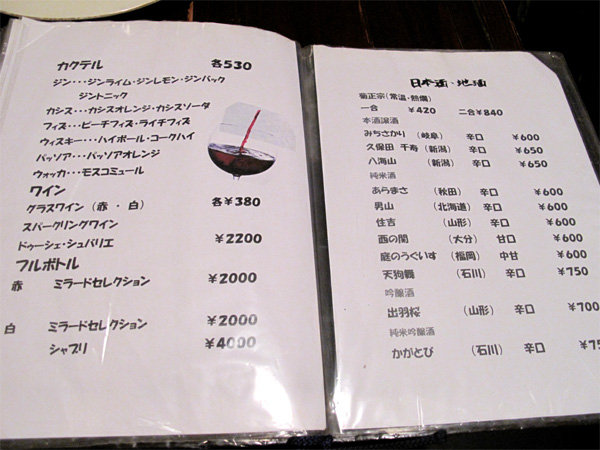 カクテル 各530
ジン・・・ジンライム・ジンレモン・ジンバック
ジントニック
カシス・・・カシスオレンジ・カシスソーダ
フィズ・・・ピーチフィズ・ライチフィズ
ウィスキー・・・ハイボール・コークハイ
パッソア・・・パッソアオレンジ
ウォッカ・・・モスコミュール
ワイン
グラスワイン（赤・白） 各￥380
スパークリングワイン
ドゥーシェ・シュバリエ ￥2200
フルボトル
赤 ミラードセレクション ￥2000
白 ミラードセレクション ￥2000
シャブリ ￥4000
日本酒・地酒
菊正宗（常温・熱燗）
一合 ￥420 二合￥840
本醸造酒
みちさかり（岐阜） 辛口 ￥600
久保田 千寿（新潟） 辛口 ￥650
八海山（新潟） 辛口 ￥650
純米酒
あらまさ（秋田） 辛口 ￥600
男山（北海道） 辛口 ￥600
住吉（山形） 辛口 ￥600
西の関（大分） 甘口 ￥600
庭のうぐいす（福岡） 中甘 ￥600
天狗舞（石川） 辛口 ￥750
吟醸酒
出羽桜（山形） 辛口 ￥700
純米吟醸酒
かがとび（石川） 辛口